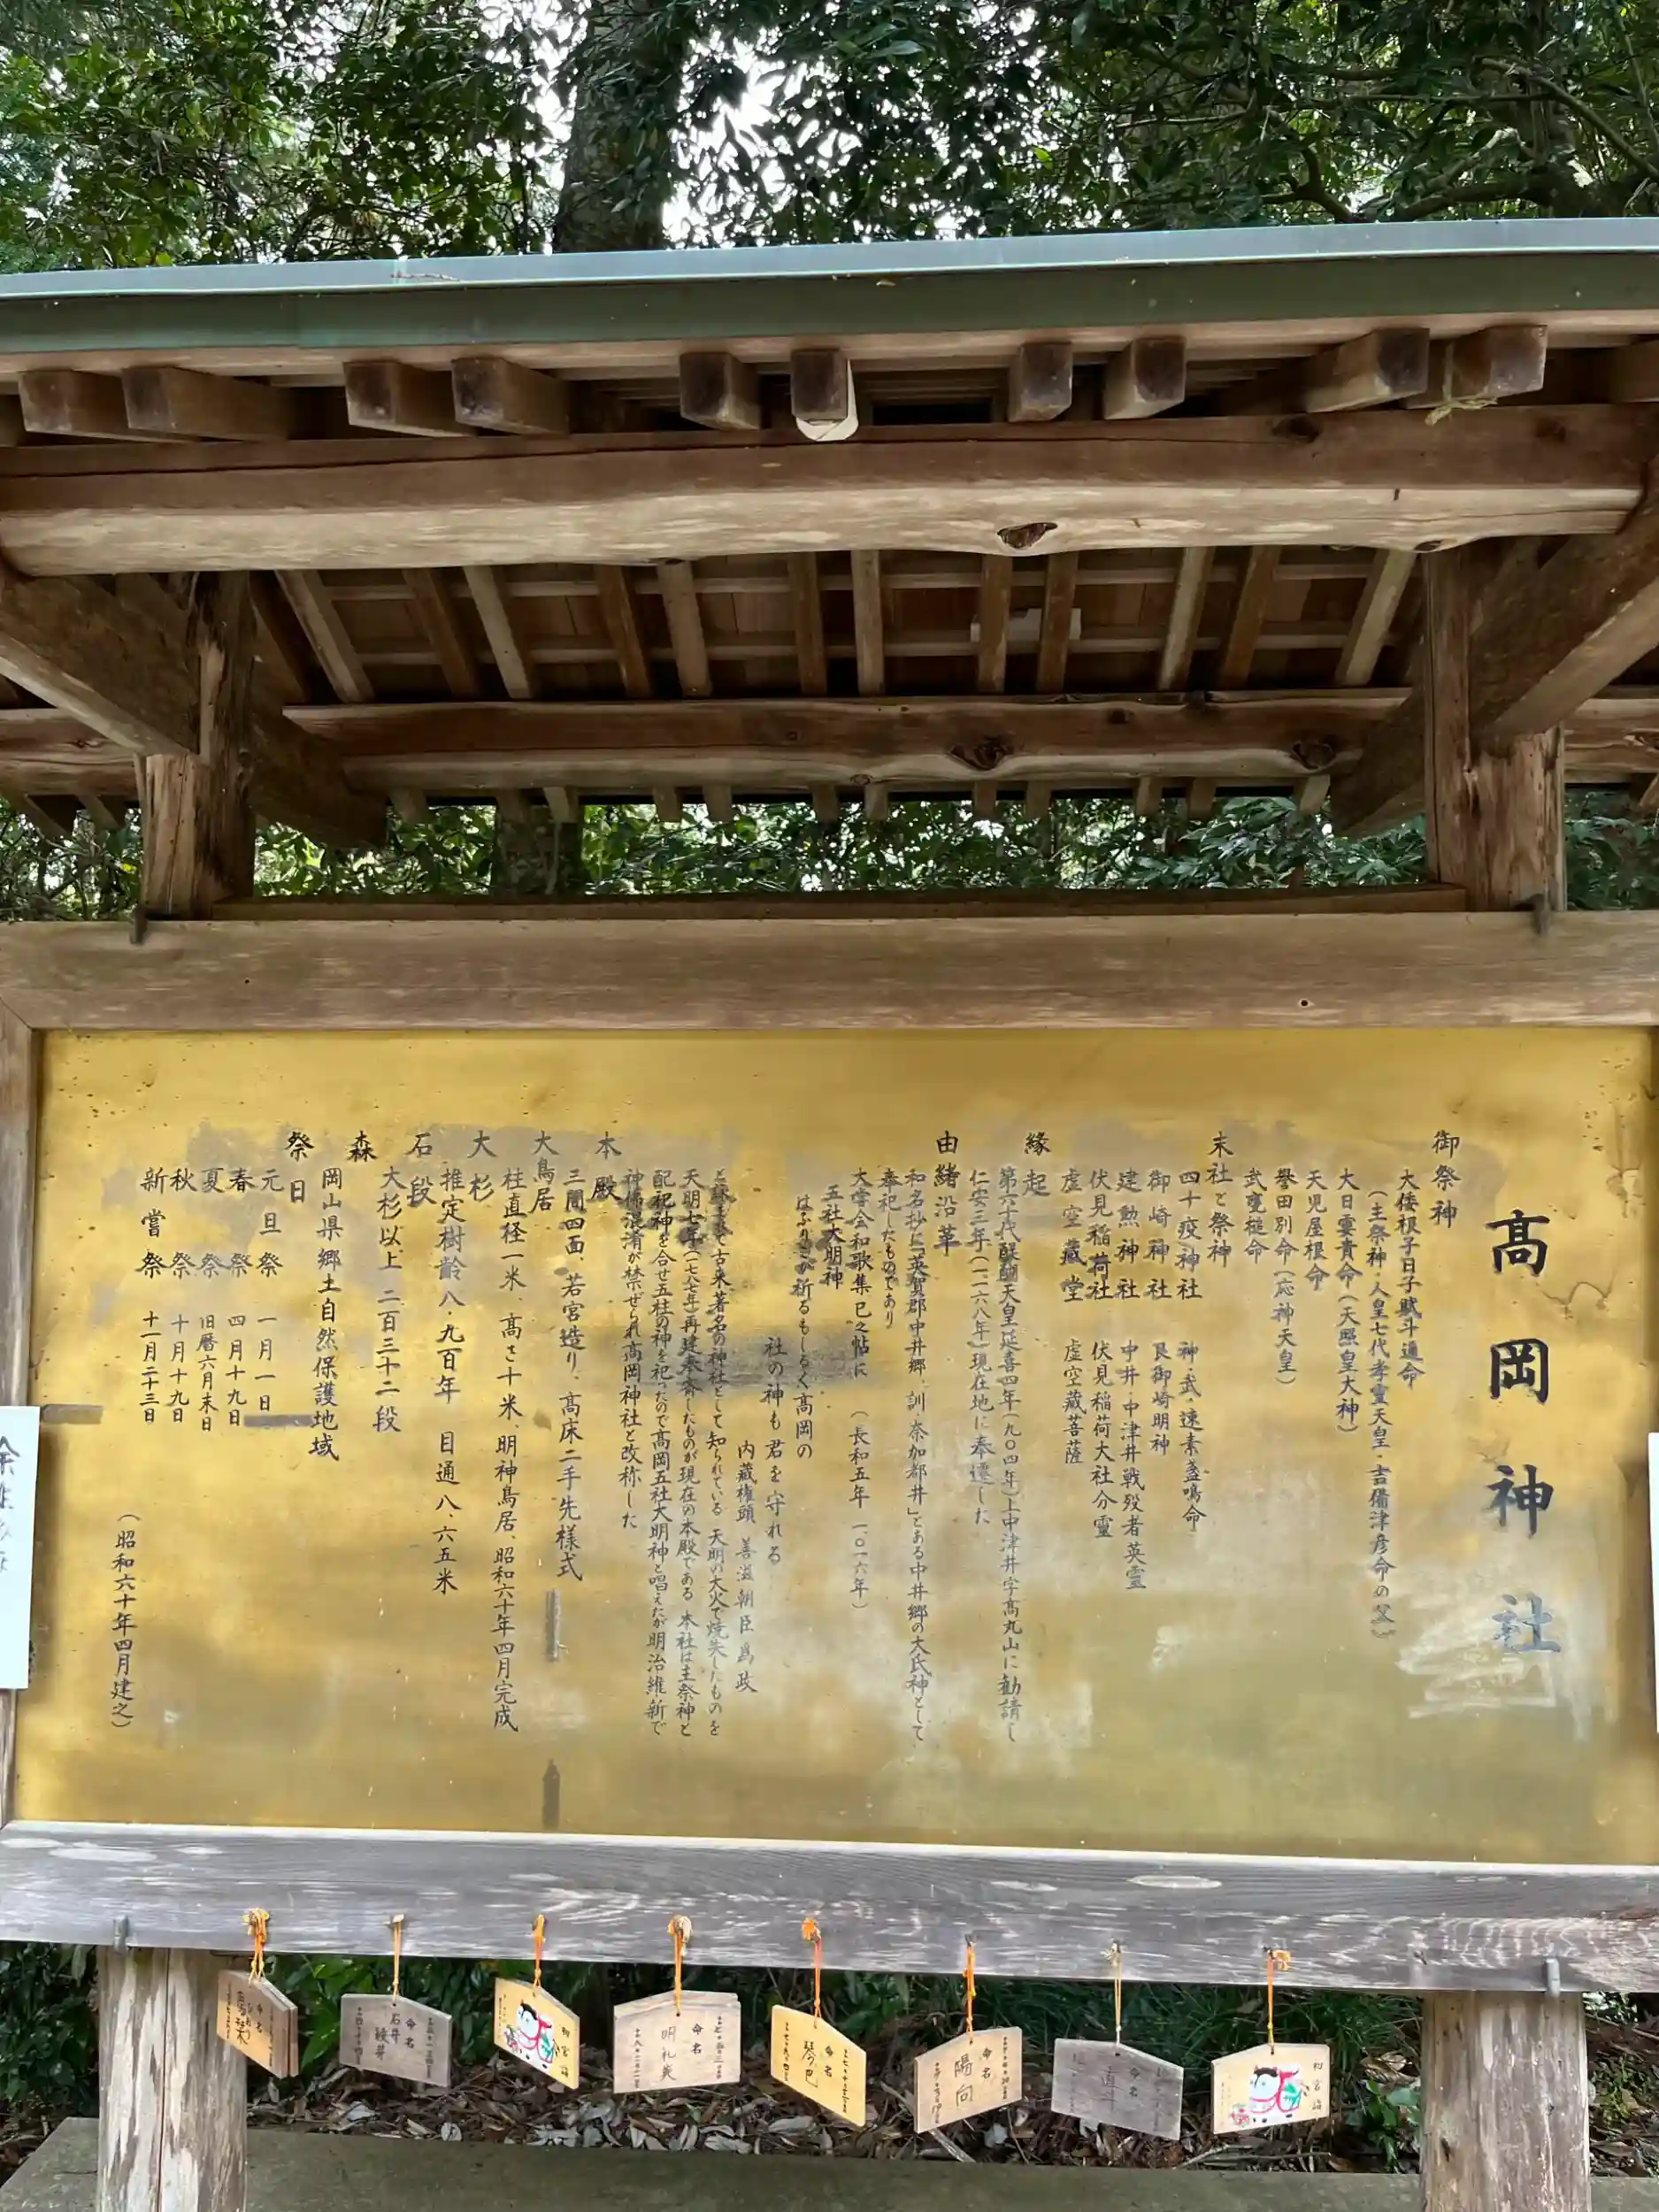 高岡神社
御祭神
大倭根子日子賦斗邇命
(主祭神・人皇七代孝霊天皇・吉備津彦命の父)
大日孁貴命(天照皇大神)
天児屋根命
誉田別命(応神天皇)
武甕槌命
末社と祭神
四十疫神社 神武・速素盞鳴命
御崎神社 艮御崎明神
建勲神社 中井・中津井戦歿者英霊
伏見稲荷社 伏見稲荷大社分霊
虚空蔵堂 虚空蔵菩薩
縁起
第六十代醍醐天皇延喜四年(九〇四年)上中津井字高丸山に勧請し
仁安三年(一一六八年)現在地に奉遷した
由緒沿革
和名抄に「英賀郡中井郷、訓・奈加都井」とある中井郷の大氏神として
奉祀したものであり
大嘗会和歌集巳之帖に (長和五年 一〇一六年)
五社大明神
はふりこが祈るもしるく高岡の
社の神も君を守れる
内蔵権頭 善滋朝臣為政
と詠まれて古来著名の神社として知られている 天明の大火で焼失したものを
天明七年(一七八七年)再建奉斎したものが現在の本殿である 本社は主祭神と
配祀神を合せ五柱の神を祀ったので高岡五社大明神と唱えたが明治維新で
神佛混淆が禁ぜられ高岡神社と改称した
本殿
三間四面、若宮造り、高床二手先様式
大鳥居
柱直径一米、高さ十米、明神鳥居、昭和六十年四月完成
大杉
推定樹齢八・九百年 目通八、六五米
石段
大杉以上 二百三十二段
森
岡山県郷土自然保護地域
祭日
元旦祭 一月一日
春祭 四月十九日
夏祭 旧暦六月末日
秋祭 十月十九日
新嘗祭 十一月二十三日
(昭和六十年四月建之)
命名
命名
石井
命名
明礼美
命名
琴巴
命名
陽向
命名
直斗
初宮詣